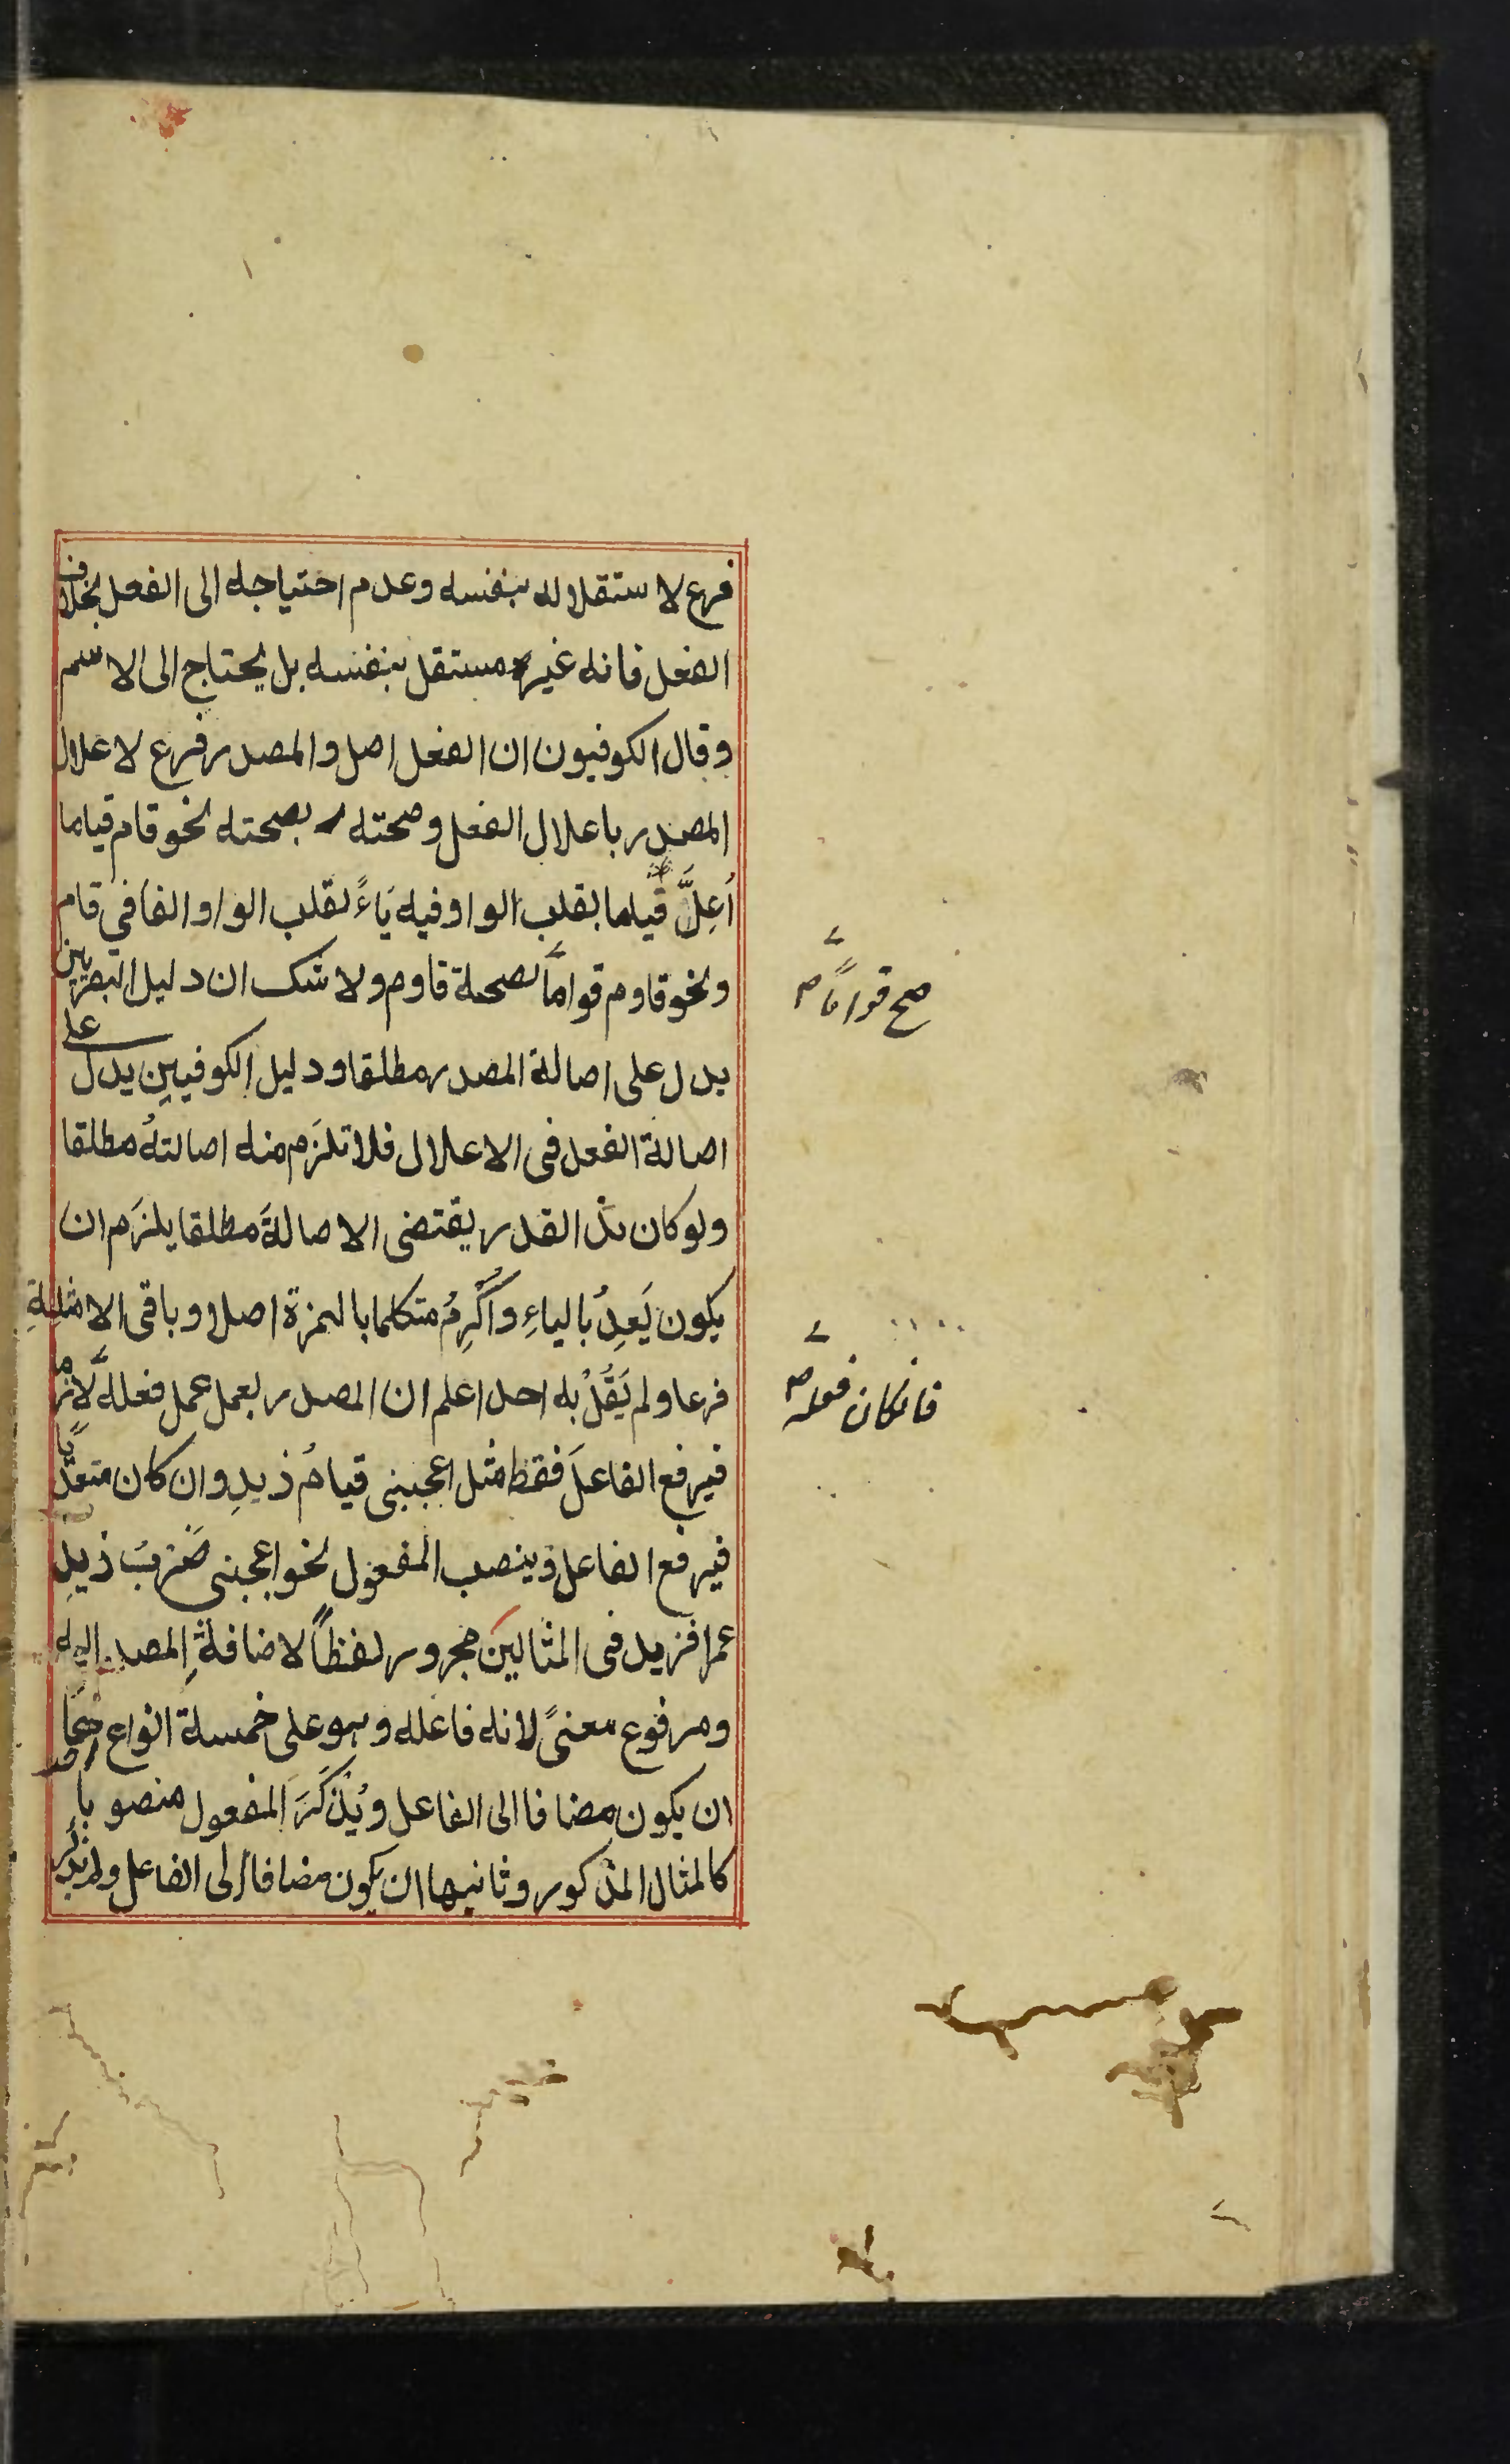 فرع لاستقلاله بنفسه وعدم احتياجه الى الفعل بخلاف
الفعل فانه غير مستقل بنفسه بل يحتاج الى الاسم
وقال الكوفيون ان الفعل اصل والمصدر فرع لاعلال
المصدر باعلال الفعل وصحته بصحته نحو قام قياما
اُعِلَّ قياما بقلب الواو فيه يَاءً لقلب الواو الفا فى قام
ونحو قاوم قواماً لصحة قاوم ولا شك ان دليل البصريين
يدل على اصالة المصدر مطلقا ودليل الكوفيين يدل على
اصالة الفعل فى الاعلال فلا تلزَم منه اصالتهُ مطلقا
ولو كان هذا القدر يقتضى الاصالةَ مطلقا يلزَم ان
يكون يَعِدُ بالياءِ واُكْرِمُ متكلما بالهمزة اصلا وباقى الامثلةِ
فرعا ولم يَقُلْ به احد اعلم ان المصدر يعمل عمل فعله لازما
فيرفع الفاعلَ فقط مثل اعجبنى قيامُ زيدٍ وان كان متعدّيًا
فيرفع الفاعل وينصب المفعول نحو اعجبنى ضَرْبُ زيدٍ
عمرا فزيد فى المثالين مجرور لفظاً لاضافةِ المصدر اليه
ومرفوع معنىً لانه فاعله وهو على خمسة انواع احدها
ان يكون مضافا الى الفاعل ويُذْكَرَ المفعول منصوباً
كالمثال المذكور وثانيها ان يكون مضافا الى الفاعل ولم يذكر
صح قواماً
فانكان فعله